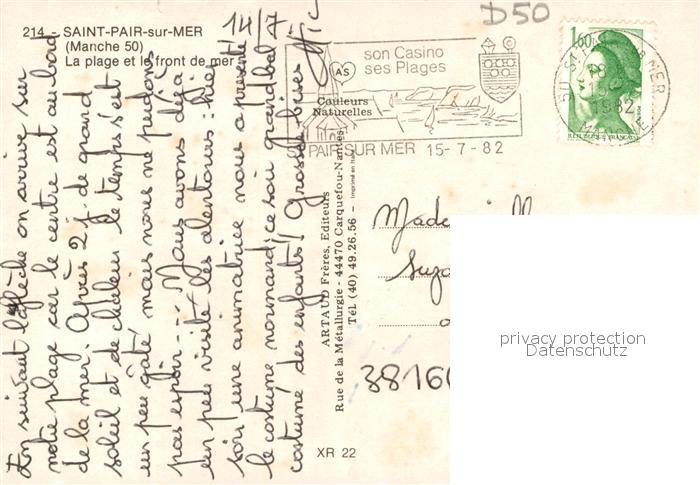 D50
214 SAINT-PAIR-sur-MER
(Manche 50)
La plage et le front de mer
14/7
En suivant la flèche on arrive sur
notre plage car le centre est au bord
de la mer. Après 2 j. de grand
soleil et de chaleur le temps s'est
un peu gâté mais nous ne perdons
pas espoir... Nous avons déjà
un peu visité les alentours : hier
soir une animatrice nous a présenté
le costume normand ; ce soir grand bal
costumé des enfants ! Grosses bises
son Casino
ses Plages
AS
Couleurs
Naturelles
PAIR SUR MER 15-7-82
1,60
1982
REPUBLIQUE FRANÇAISE
ARTAUD Frères, Editeurs
Rue de la Métallurgie - 44470 Carquefou-Nantes
Tél. (40) 49.26.56 - Imprimé en
XR 22
38160
privacy protection
Datenschutz